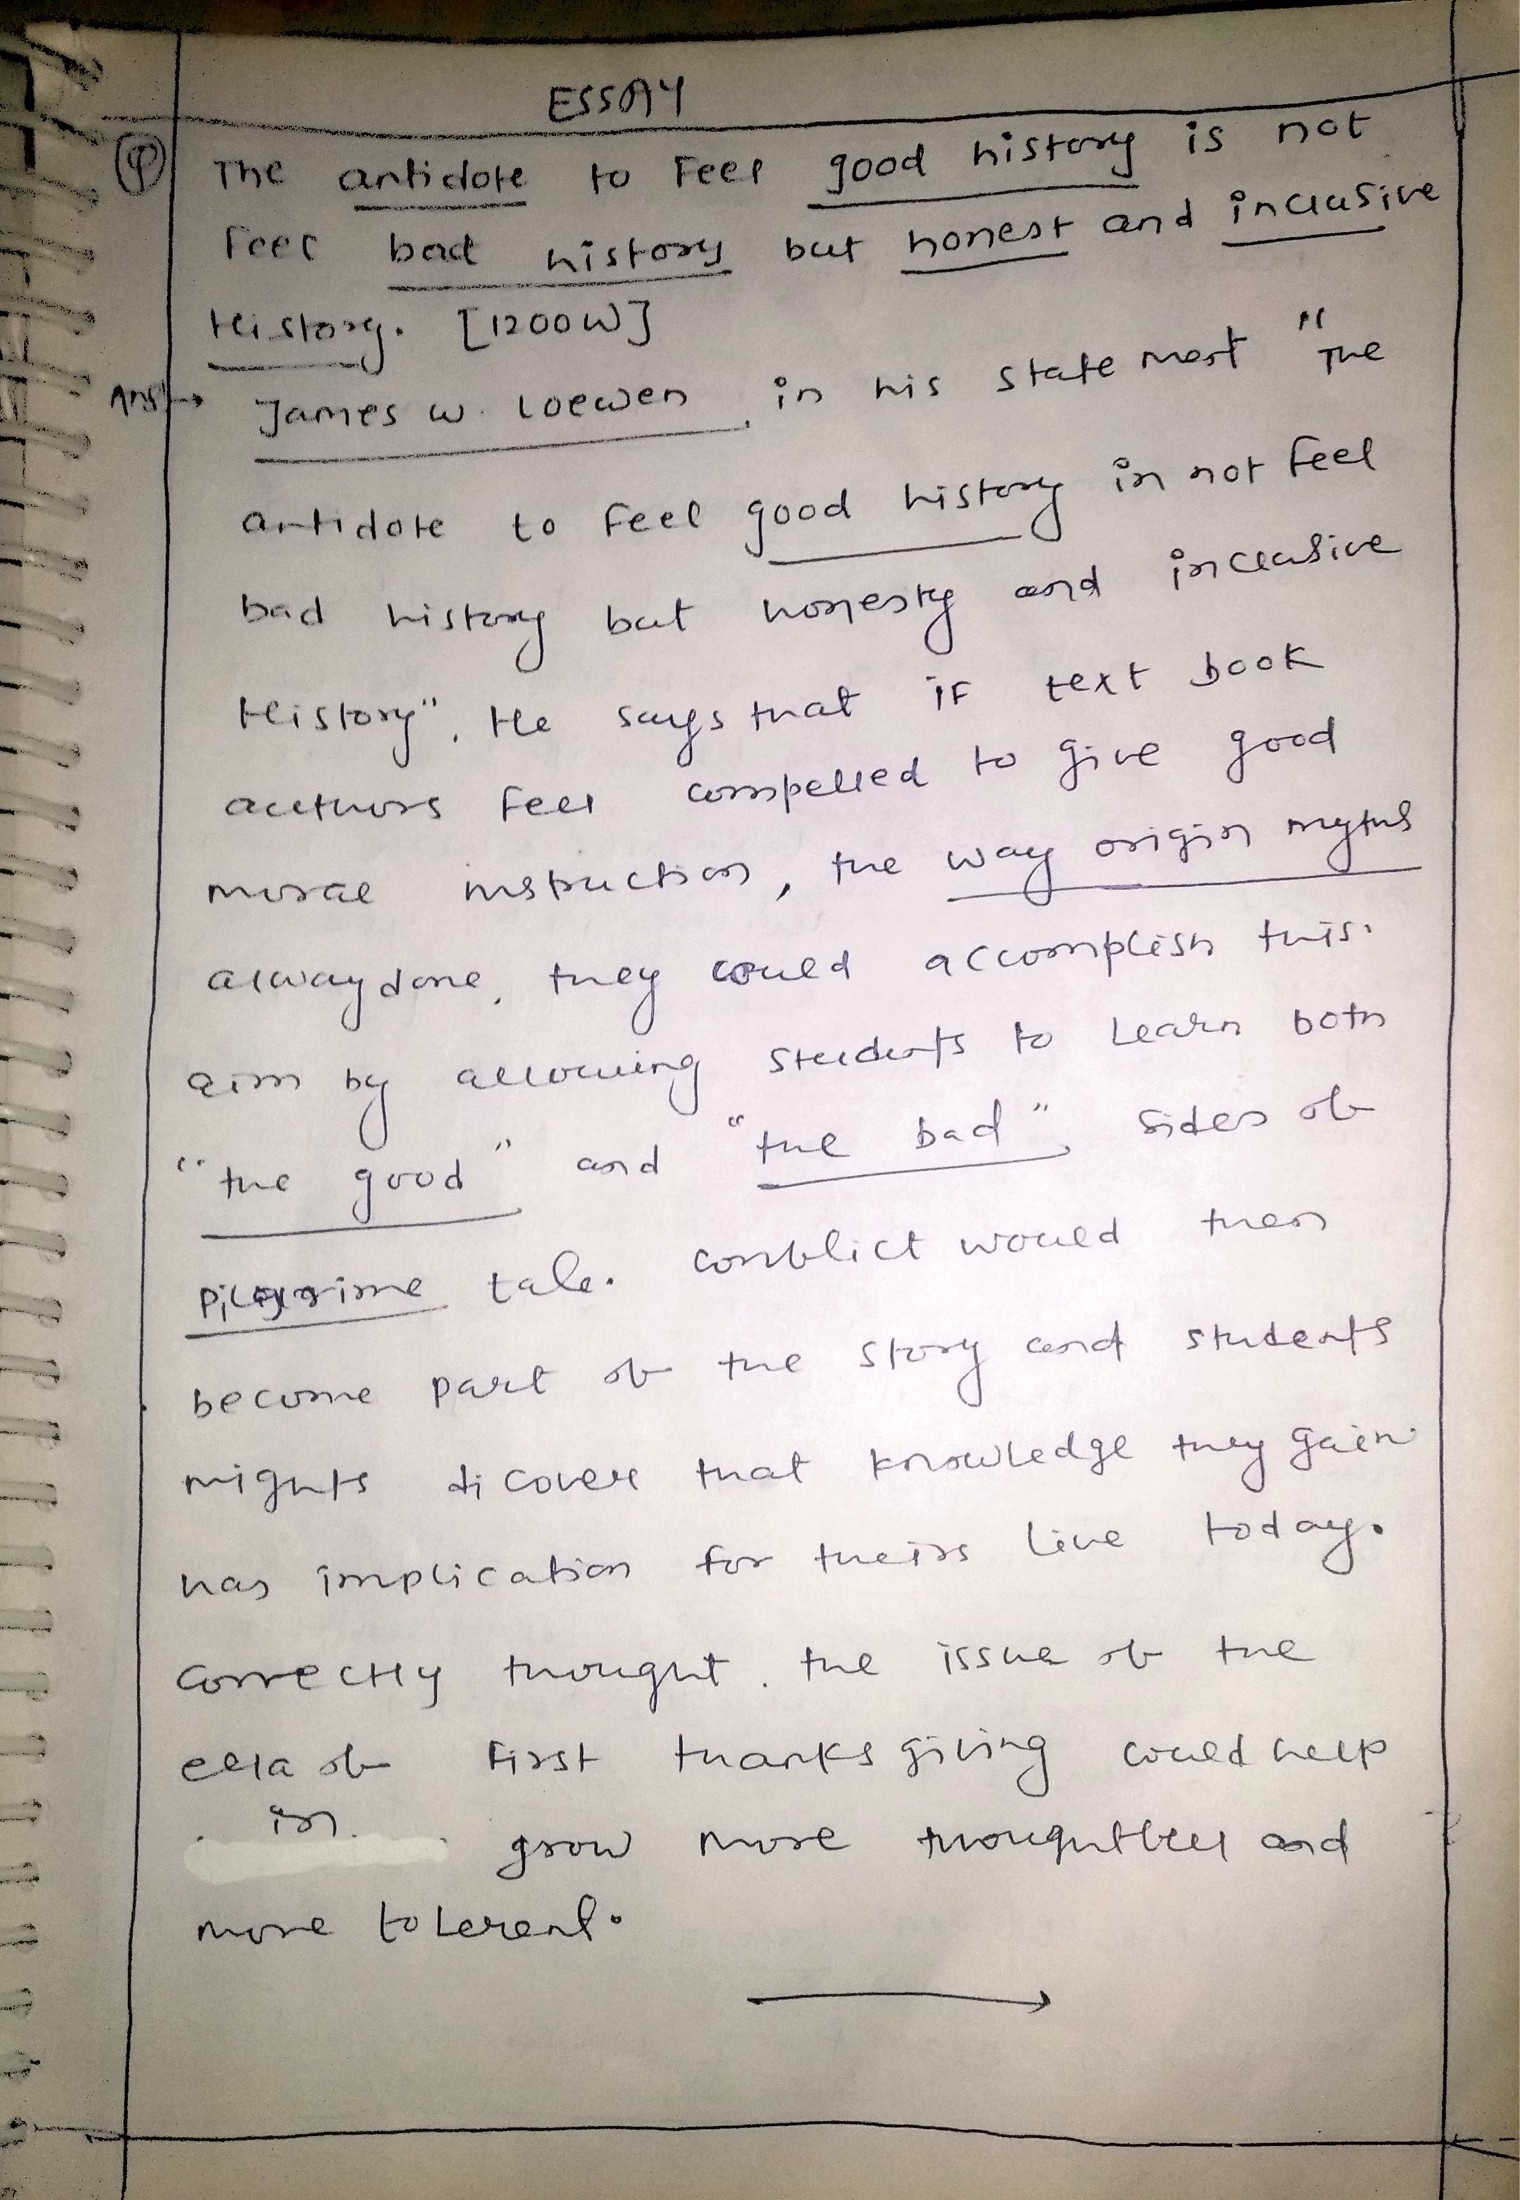 ESSAY
Q The antidote to Feel good history is not
Feel bad history but honest and inclusive
History. [1200W]
Ans→ James W. Loewen, in his statement "The
antidote to Feel good history in not feel
bad history but honesty and inclusive
History". He says that if text book
authors feel compelled to give good
moral instruction, the way origin myths
alway done, they could accomplish this.
aim by allowing students to Learn both
"the good" and "the bad", sides of
pilgrime tale. conflict would then
become part of the story and students
mights dicover that knowledge they gain
has implication for theirs live today.
correctly thought. the issue of the
era of First thanks giving could help
in grow more thoughtful and
more tolerent.